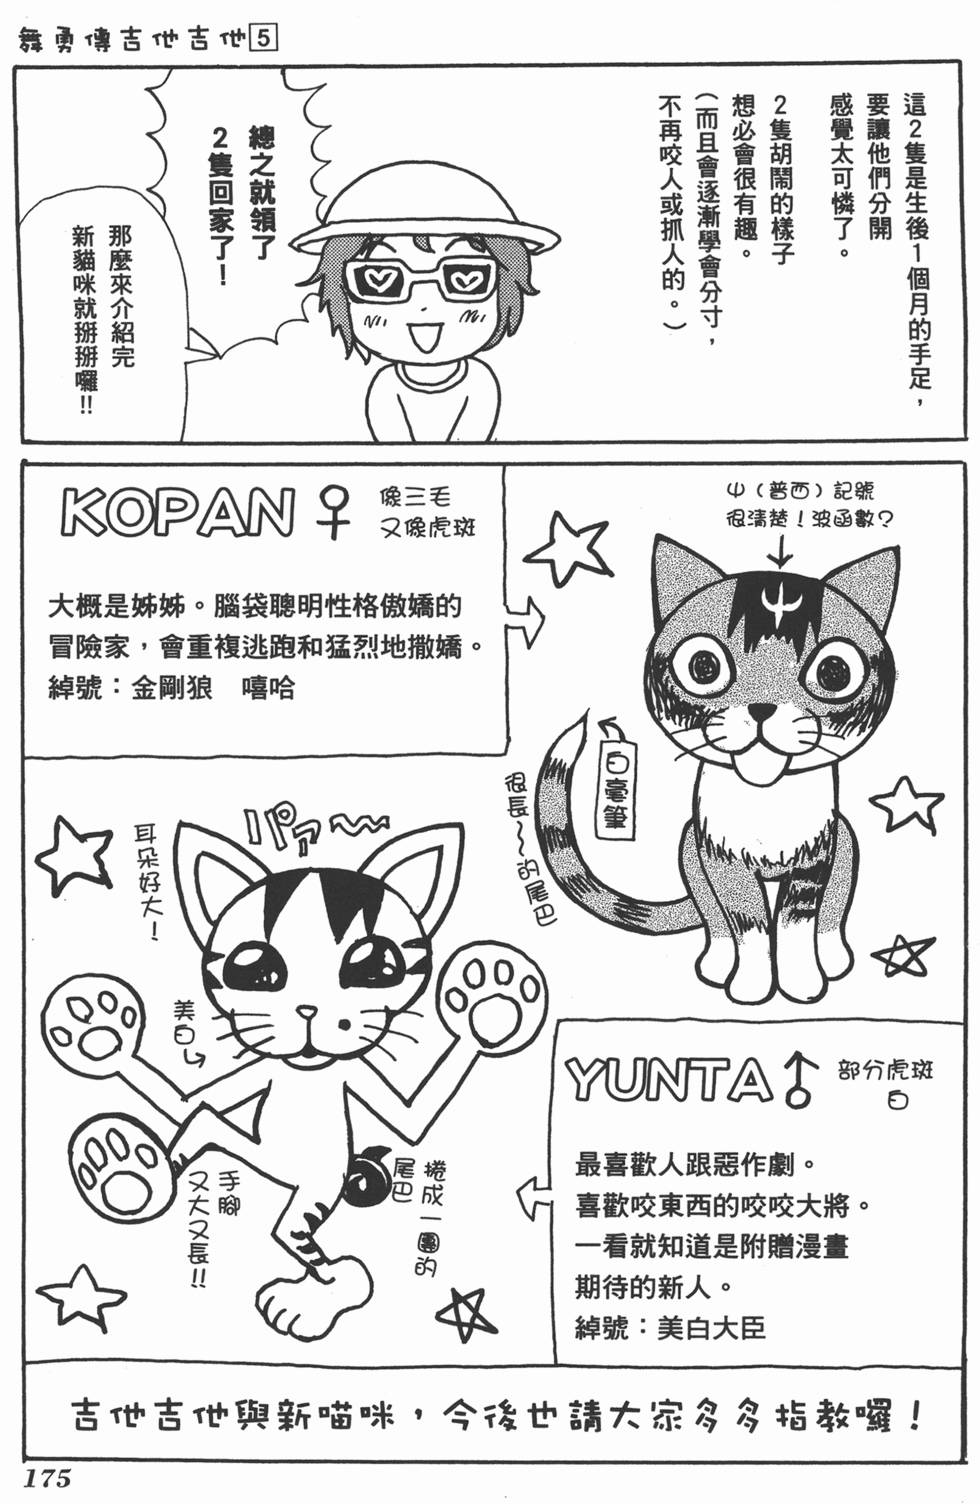 舞勇傳吉他吉他5
這2隻是生後1個月的手足，
要讓他們分開
感覺太可憐了。
2隻胡鬧的樣子
想必會很有趣。
(而且會逐漸學會分寸，
不再咬人或抓人的。)
總之就領了
2隻回家了！
那麼來介紹完
新貓咪就掰掰囉!!
KOPAN♀
像三毛
又像虎斑
大概是姊姊。腦袋聰明性格傲嬌的
冒險家，會重複逃跑和猛烈地撒嬌。
綽號：金剛狼　嘻哈
ψ(普西)記號
很清楚！波函數？
白毫筆
很長～～的尾巴
パァ～
耳朵好大！
美白
手腳
又大又長!!
捲成一團的
尾巴
YUNTA♂
部分虎斑
白
最喜歡人跟惡作劇。
喜歡咬東西的咬咬大將。
一看就知道是附贈漫畫
期待的新人。
綽號：美白大臣
吉他吉他與新喵咪，今後也請大家多多指教囉！
175